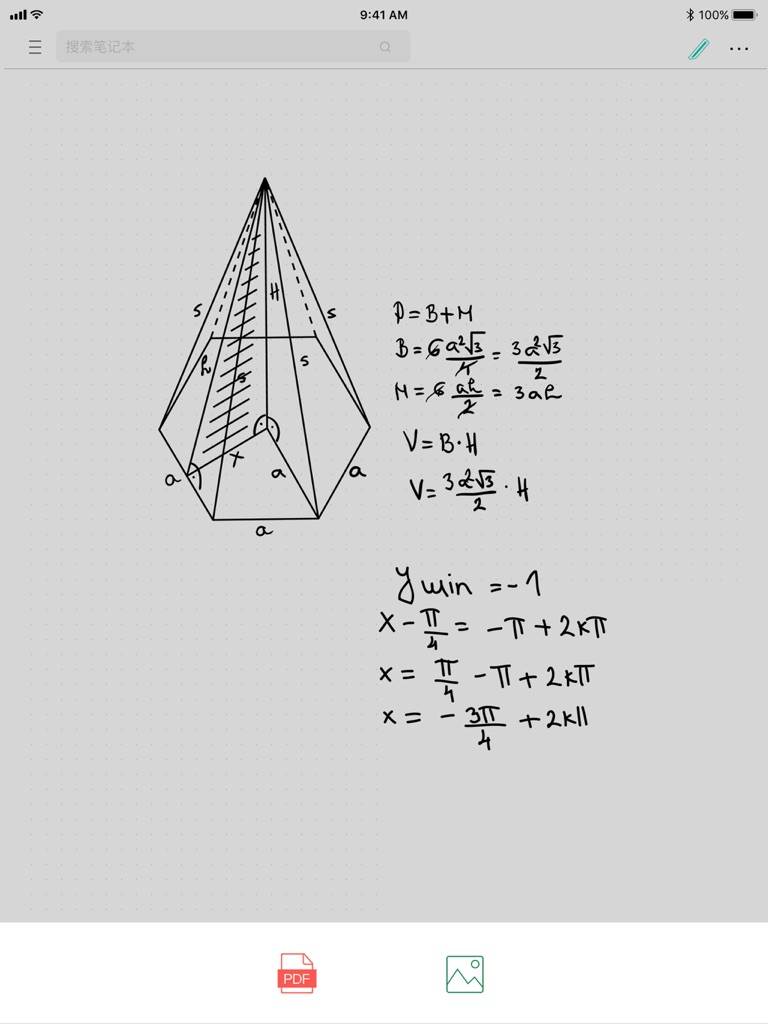 9:41 AM
100%
搜索笔记本
s
H
s
h
s
s
x
a
a
a
a
P=B+M
B=6 a²√3/4 = 3a²√3/2
M=6 ah/2 = 3ah
V=B·H
V= 3a²√3/2 · H
y min =-1
x - π/4 = -π + 2kπ
x = π/4 - π + 2kπ
x = - 3π/4 + 2kπ
PDF